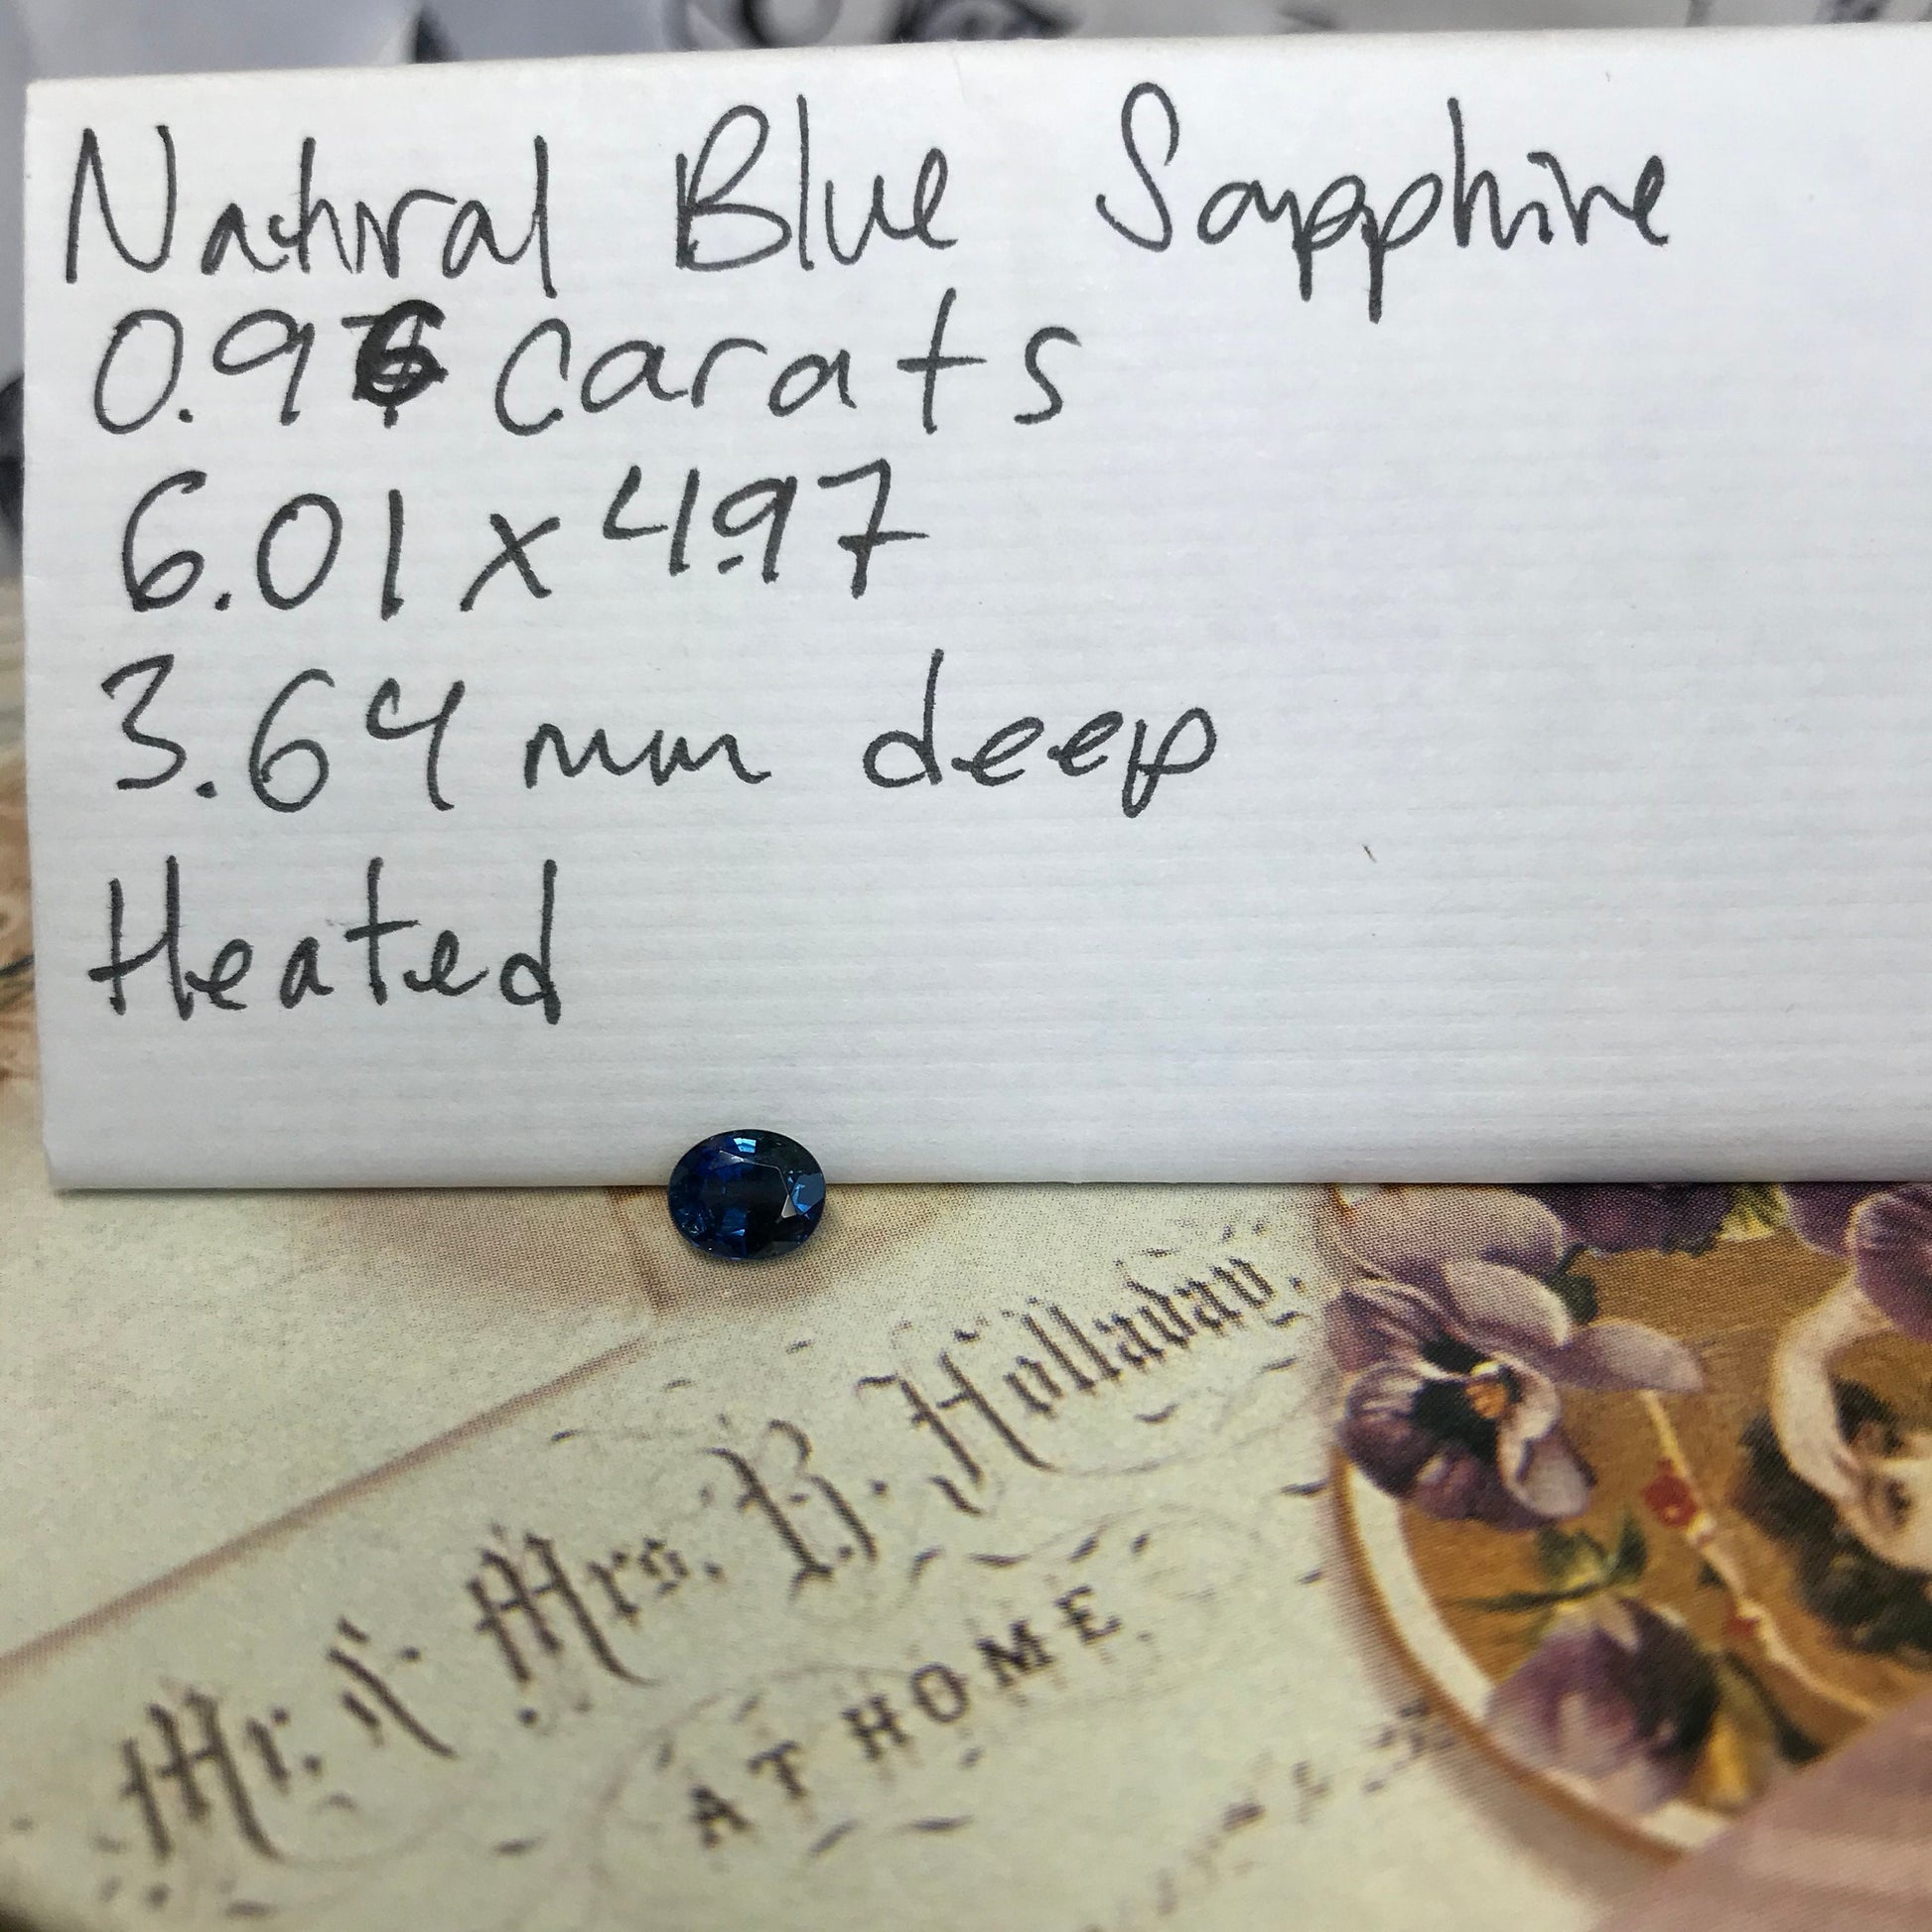 Natural Blue Sapphire
0.96 carats
6.01 x 4.97
3.64 mm deep
Heated
Mr. & Mrs. B. Holladay.
AT HOME